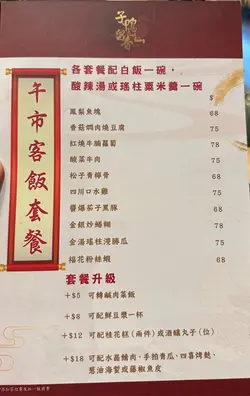 午市客飯套餐
各套餐配白飯一碗，
酸辣湯或瑤柱粟米羹一碗
$
鳳梨魚塊 68
香菇燜肉燒豆腐 75
紅燒牛腩蘿蔔 78
酸菜牛肉 75
松子青檸骨 68
四川口水雞 75
醬爆茄子黑豚 68
金銀炒蝦糊 78
金湯瑤柱浸勝瓜 75
桂花粉絲蝦 68
套餐升級
+$5 可轉鹹肉菜飯
+$8 可配鮮豆漿一杯
+$12 可配桂花糕（兩件）或酒釀丸子（位）
+$18 可配水晶餚肉，手拍青瓜，四喜烤麩，
葱油海蜇或藤椒魚皮